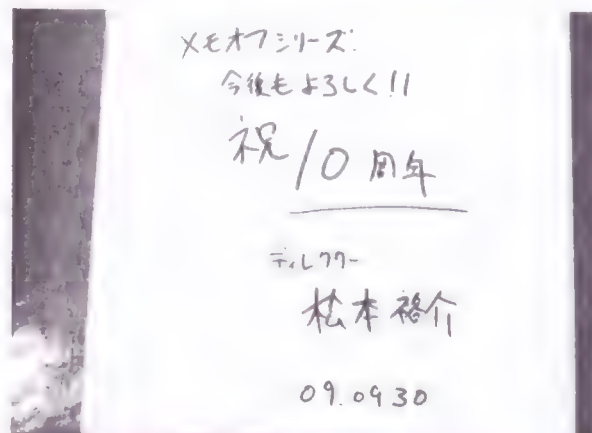 メモオフシリーズ:
今後もよろしく!!
祝10周年
ディレクター
松本裕介
09.0930